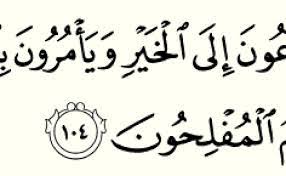 عُونَ إِلَى ٱلْخَيْرِ وَيَأْمُرُونَ بِ
مُ ٱلْمُفْلِحُونَ ١٠٤